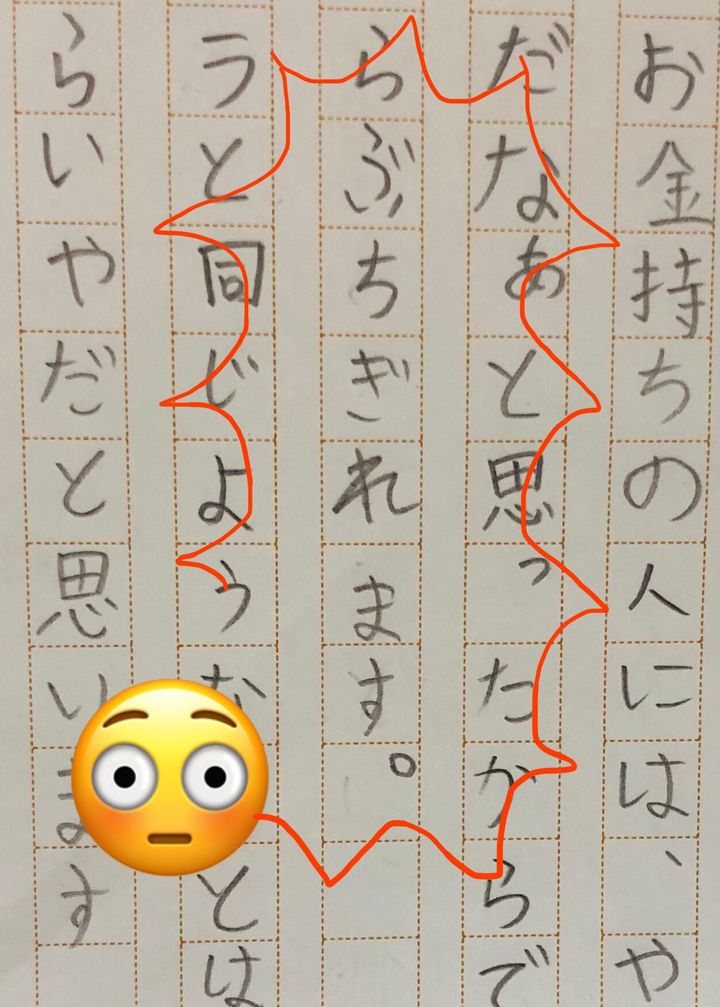 お金持ちの人には、や
だなあと思ったからで
らぶちぎれます。
ラと同じようなとは
らいやだと思います